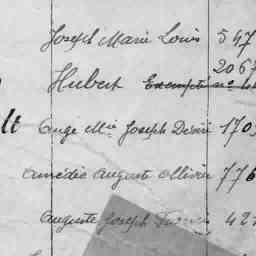 Joseph Marie Louis 547
2067
Hubert Exempté no
lt Ange Mie Joseph Désiré 170
amédée auguste ollivier 776
auguste Joseph 42